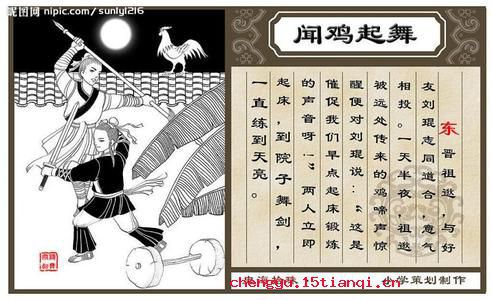 昵图网 nipic.com/sunlyl216
闻鸡起舞
东晋祖逖,与好
友刘琨志同道合,意气
相投。一天半夜,祖逖
被远处传来的鸡啼声惊
醒便对刘琨说:“这是
催促我们早点起床锻炼
的声音呀!”两人立即
起床,到院子舞剑,
一直练到天亮。
小学策划制作
chengyu.15tianqi.cn